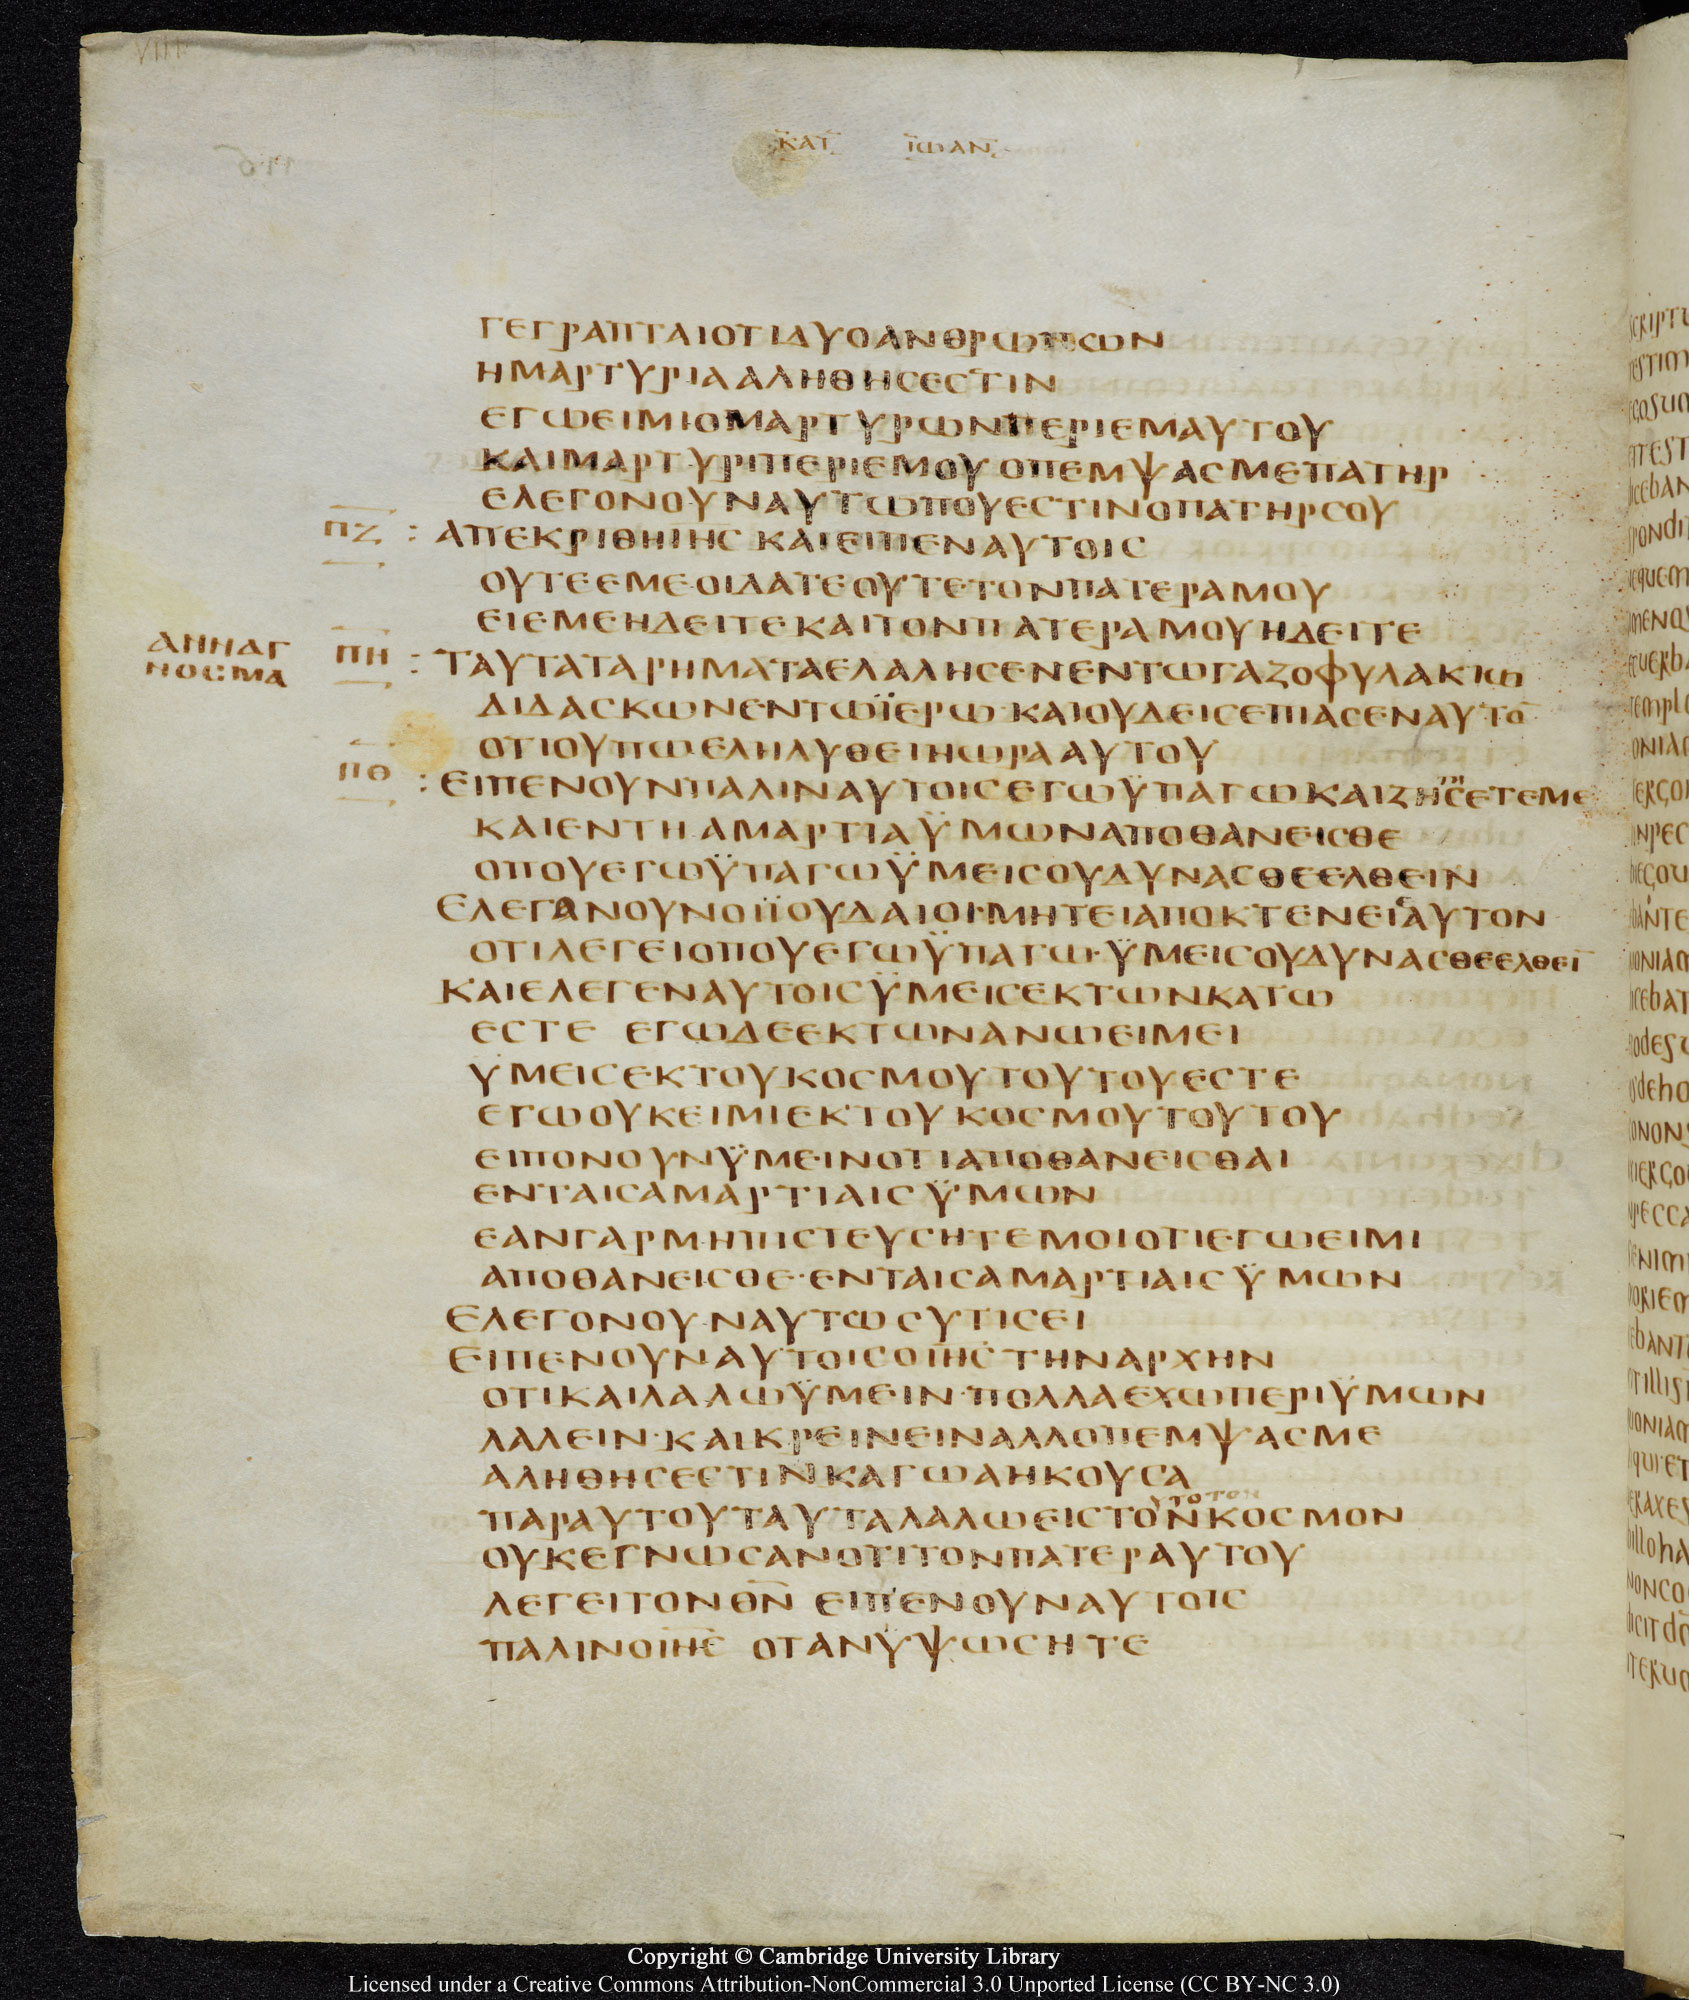 VIII
ΚΑΤ ΙΩΑΝ
ΓΕΓΡΑΠΤΑΙΟΤΙΔΥΟΑΝΘΡΩΠΩΝ
ΗΜΑΡΤΥΡΙΑΑΛΗΘΗΣΕΣΤΙΝ
ΕΓΩΕΙΜΙΟΜΑΡΤΥΡΩΝΠΕΡΙΕΜΑΥΤΟΥ
ΚΑΙΜΑΡΤΥΡΙΠΕΡΙΕΜΟΥΟΠΕΜΨΑΣΜΕΠΑΤΗΡ
ΕΛΕΓΟΝΟΥΝΑΥΤΩΠΟΥΕΣΤΙΝΟΠΑΤΗΡΣΟΥ
ΠΖ : ΑΠΕΚΡΙΘΗΙΗΣ ΚΑΙΕΙΠΕΝΑΥΤΟΙΣ
ΟΥΤΕΕΜΕΟΙΔΑΤΕΟΥΤΕΤΟΝΠΑΤΕΡΑΜΟΥ
ΕΙΕΜΕΗΔΕΙΤΕΚΑΙΤΟΝΠΑΤΕΡΑΜΟΥΗΔΕΙΤΕ
ΑΝΝΑΓ
ΝΟΣΜΑ
ΠΗ : ΤΑΥΤΑΤΑΡΗΜΑΤΑΕΛΑΛΗΣΕΝΕΝΤΩΓΑΖΟΦΥΛΑΚΙΩ
ΔΙΔΑΣΚΩΝΕΝΤΩΪΕΡΩ·ΚΑΙΟΥΔΕΙΣΕΠΙΑΣΕΝΑΥΤΟ̅
ΟΤΙΟΥΠΩΕΛΗΛΥΘΕΙΗΩΡΑΑΥΤΟΥ
ΠΘ : ΕΙΠΕΝΟΥΝΠΑΛΙΝΑΥΤΟΙΣΕΓΩΫΠΑΓΩΚΑΙΖΗΣΕΤΕΜΕ
ΚΑΙΕΝΤΗΑΜΑΡΤΙΑΫΜΩΝΑΠΟΘΑΝΕΙΣΘΕ
ΟΠΟΥΕΓΩΫΠΑΓΩΫΜΕΙΣΟΥΔΥΝΑΣΘΕΕΛΘΕΙΝ
ΕΛΕΓΑΝΟΥΝΟΙΪΟΥΔΑΙΟΙ·ΜΗΤΕΙΑΠΟΚΤΕΝΕΙΑΥΤΟΝ
ΟΤΙΛΕΓΕΙΟΠΟΥΕΓΩΫΠΑΓΩ·ΫΜΕΙΣΟΥΔΥΝΑΣΘΕΕΛΘΕΙ̅
ΚΑΙΕΛΕΓΕΝΑΥΤΟΙΣΫΜΕΙΣΕΚΤΩΝΚΑΤΩ
ΕΣΤΕ ΕΓΩΔΕΕΚΤΩΝΑΝΩΕΙΜΕΙ
ΫΜΕΙΣΕΚΤΟΥΚΟΣΜΟΥΤΟΥΤΟΥΕΣΤΕ
ΕΓΩΟΥΚΕΙΜΙΕΚΤΟΥΚΟΣΜΟΥΤΟΥΤΟΥ
ΕΙΠΟΝΟΥΝΫΜΕΙΝΟΤΙΑΠΟΘΑΝΕΙΣΘΑΙ
ΕΝΤΑΙΣΑΜΑΡΤΙΑΙΣΫΜΩΝ
ΕΑΝΓΑΡΜΗΠΙΣΤΕΥΣΗΤΕΜΟΙΟΤΙΕΓΩΕΙΜΙ
ΑΠΟΘΑΝΕΙΣΘΕ·ΕΝΤΑΙΣΑΜΑΡΤΙΑΙΣΫΜΩΝ
ΕΛΕΓΟΝΟΥΝΑΥΤΩΣΥΤΙΣΕΙ
ΕΙΠΕΝΟΥΝΑΥΤΟΙΣΟΙΗΣΤΗΝΑΡΧΗΝ
ΟΤΙΚΑΙΛΑΛΩΫΜΕΙΝ·ΠΟΛΛΑΕΧΩΠΕΡΙΫΜΩΝ
ΛΑΛΕΙΝ·ΚΑΙΚΡΕΙΝΕΙΝΑΛΛΟΠΕΜΨΑΣΜΕ
ΑΛΗΘΗΣΕΣΤΙΝΚΑΓΩΑΗΚΟΥΣΑ
ΠΑΡΑΥΤΟΥΤΑΥΤΑΛΑΛΩΕΙΣΤΟΝΚΟΣΜΟΝ
ΟΥΚΕΓΝΩΣΑΝΟΤΙΤΟΝΠΑΤΕΡΑΥΤΟΥ
ΛΕΓΕΙΤΟΝΘ̅Ν̅ ΕΙΠΕΝΟΥΝΑΥΤΟΙΣ
ΠΑΛΙΝΟΙΗΣ ΟΤΑΝΫΨΩΣΗΤΕ
Copyright © Cambridge University Library
Licensed under a Creative Commons Attribution-NonCommercial 3.0 Unported License (CC BY-NC 3.0)